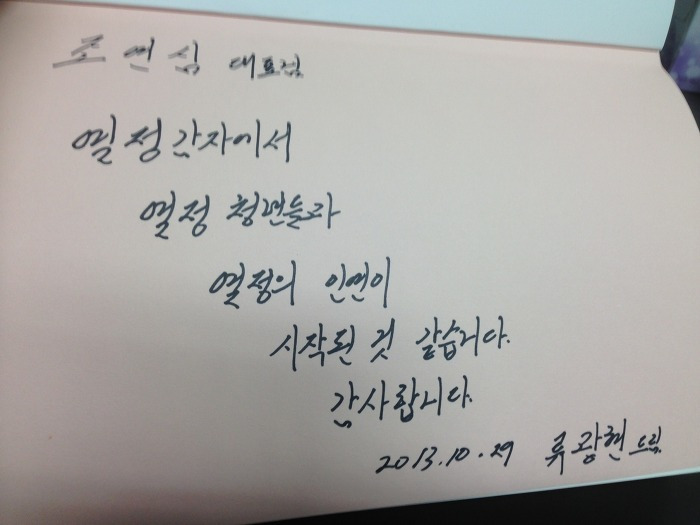 조연심 대표님
열정감자에서
열정 청년들과
열정의 인연이
시작된 것 같습니다.
감사합니다.
2013.10.29 류광현 드림